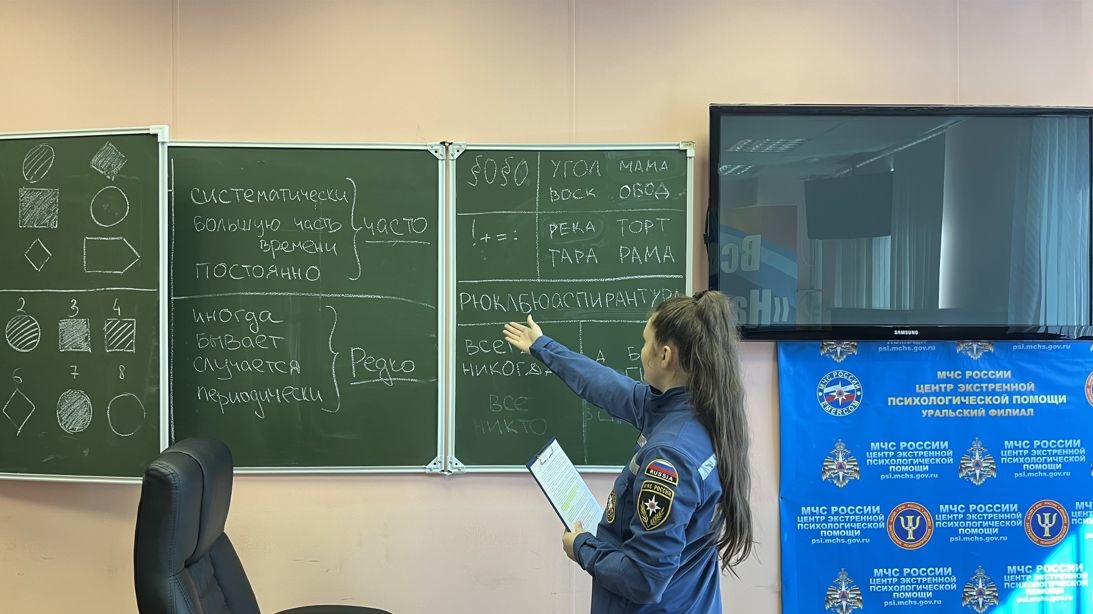 2 3 4
6 7 8
систематически
большую часть
времени
постоянно
часто
иногда
бывает
случается
периодически
Редко
§0§0
УГОЛ МАМА
ВОСК ОБОД
!+=:
РЕКА ТОРТ
ТАРА РАМА
РЮКЛБЮАСПИРАНТУРА
ВСЕ
НИКТО
SAMSUNG
RUSSIA
МЧС РОССИИ
psi.mchs.gov.ru
psi.mchs.gov.ru
МЧС РОССИИ
EMERCOM
МЧС РОССИИ
ЦЕНТР ЭКСТРЕННОЙ
ПСИХОЛОГИЧЕСКОЙ ПОМОЩИ
УРАЛЬСКИЙ ФИЛИАЛ
МЧС РОССИИ
ЦЕНТР ЭКСТРЕННОЙ
ПСИХОЛОГИЧЕСКОЙ
ПОМОЩИ
psi.mchs.gov.ru
МЧС РОССИИ
ЦЕНТР ЭКСТРЕННОЙ
ПСИХОЛОГИЧЕСКОЙ
ПОМОЩИ
psi.mchs.gov.ru
МЧС РОССИИ
ЦЕНТР ЭКСТРЕННОЙ
ПСИХОЛОГИЧЕСКОЙ ПОМОЩИ
psi.mchs.gov.ru
МЧС РОССИИ
ЦЕНТР ЭКСТРЕННОЙ
ПСИХОЛОГИЧЕСКОЙ ПОМОЩИ
psi.mchs.gov.ru
МЧС РОССИИ
ЦЕНТР ЭКСТРЕННОЙ
ПСИХОЛОГИЧЕСКОЙ
ПОМОЩИ
psi.mchs.gov.ru
МЧС РОССИИ
ЦЕНТР ЭКСТРЕННОЙ
ПСИХОЛОГИЧЕСКОЙ
ПОМОЩИ
psi.mchs.gov.ru
МЧС РОССИИ
ЦЕНТР ЭКСТРЕННОЙ
ПСИХОЛОГИЧЕСКОЙ
ПОМОЩИ
psi.mchs.gov.ru